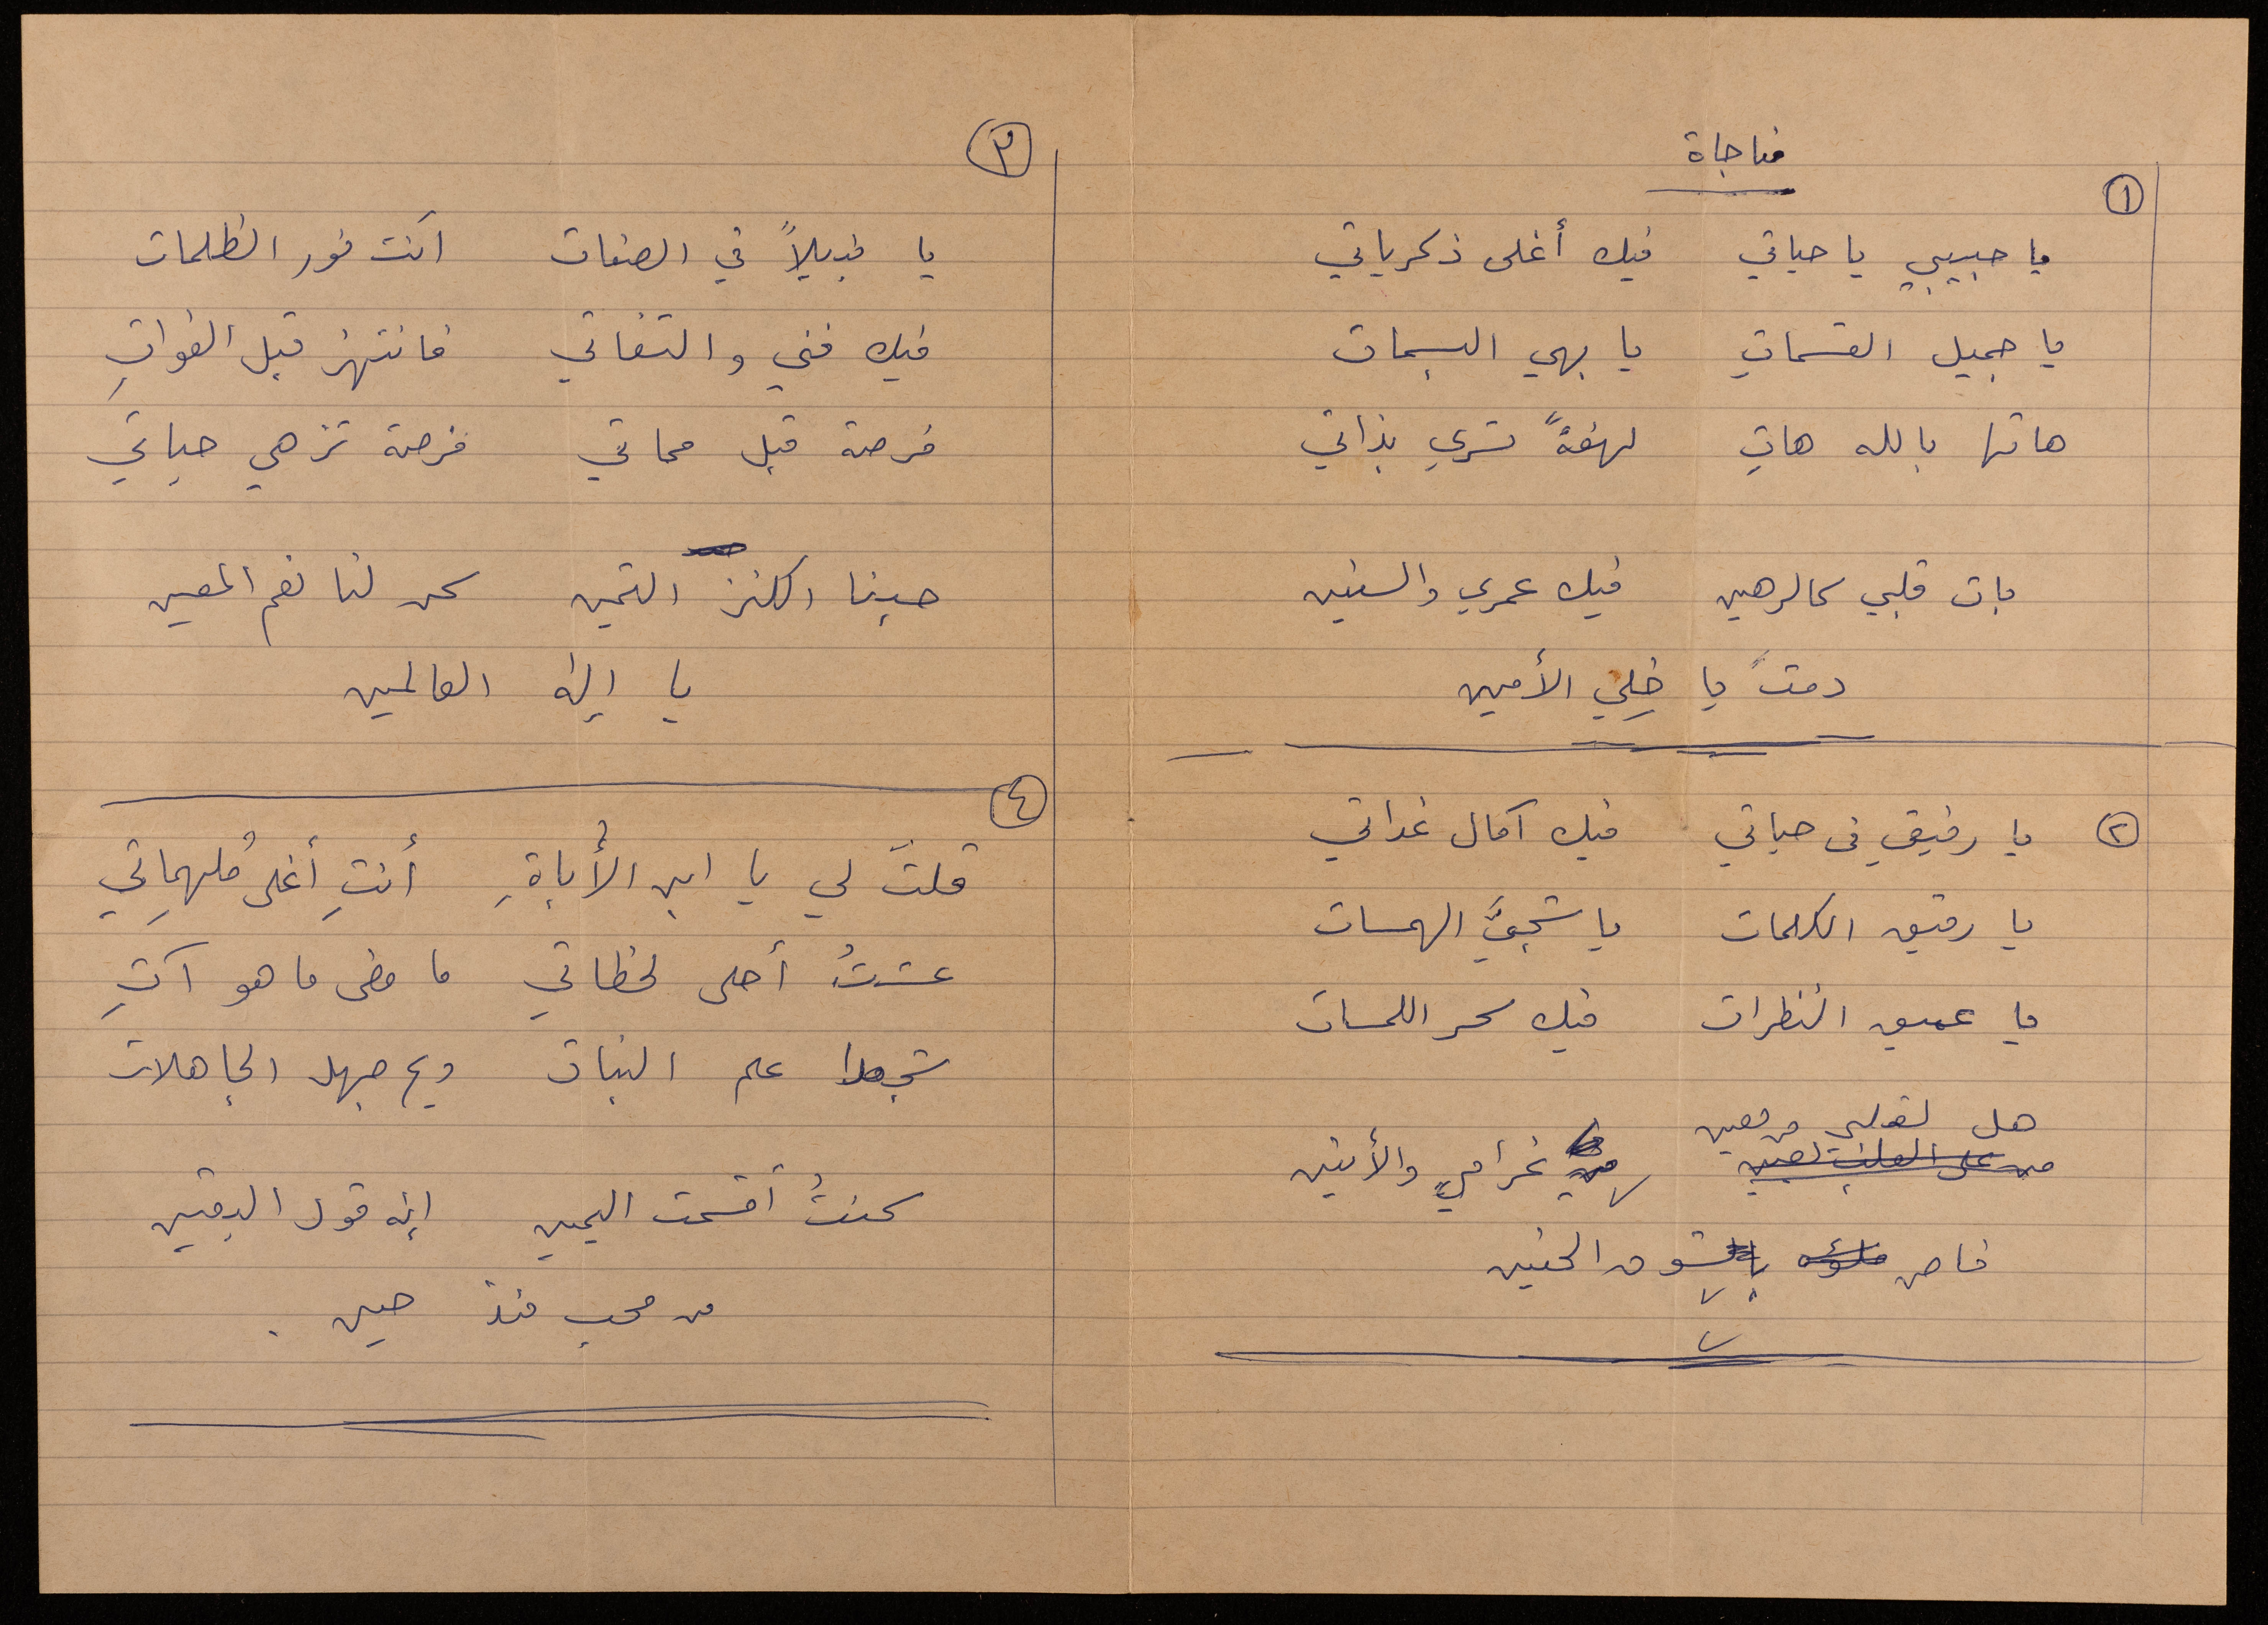 مناجاة
١
يا حبيبي يا حياتي فيك أغلى ذكرياتي
يا جميل القسماتِ يا بهي البسمات
هاتها بالله هاتِ لهفةً تسري بذاتي
بات قلبي كالرهين فيك عمري والسنين
دمتَ يا خِلِّي الأمين
٢
يا رفيقي في حياتي فيك آمال غداتي
يا رقيق الكلمات يا شجيَّ الهمسات
يا عميق النظرات فيك سحر اللمسات
هل لقلبي من معين
من على القلب يعين من غرامي والأنين
فاض بالشوق الحنين
٣
يا نبيلاً في الصفات أنت نور الظلمات
فيك فني والتفاتي فانتهز قبل الفواتِ
فرصة قبل مماتي فرصة تزهي حياتي
حبنا الكنز الثمين كن لنا نعم المعين
يا إله العالمين
٤
قلتَ لي يا ابن الأُباةِ أنتِ أغلى مُلهِماتي
عشتُ أحلى لحظاتي ما مضى ما هو آتِ
علم البنات ويح جهل الجاهلات
كنتُ أقسمت اليمين إنه قول اليقين
من محب منذ حين .